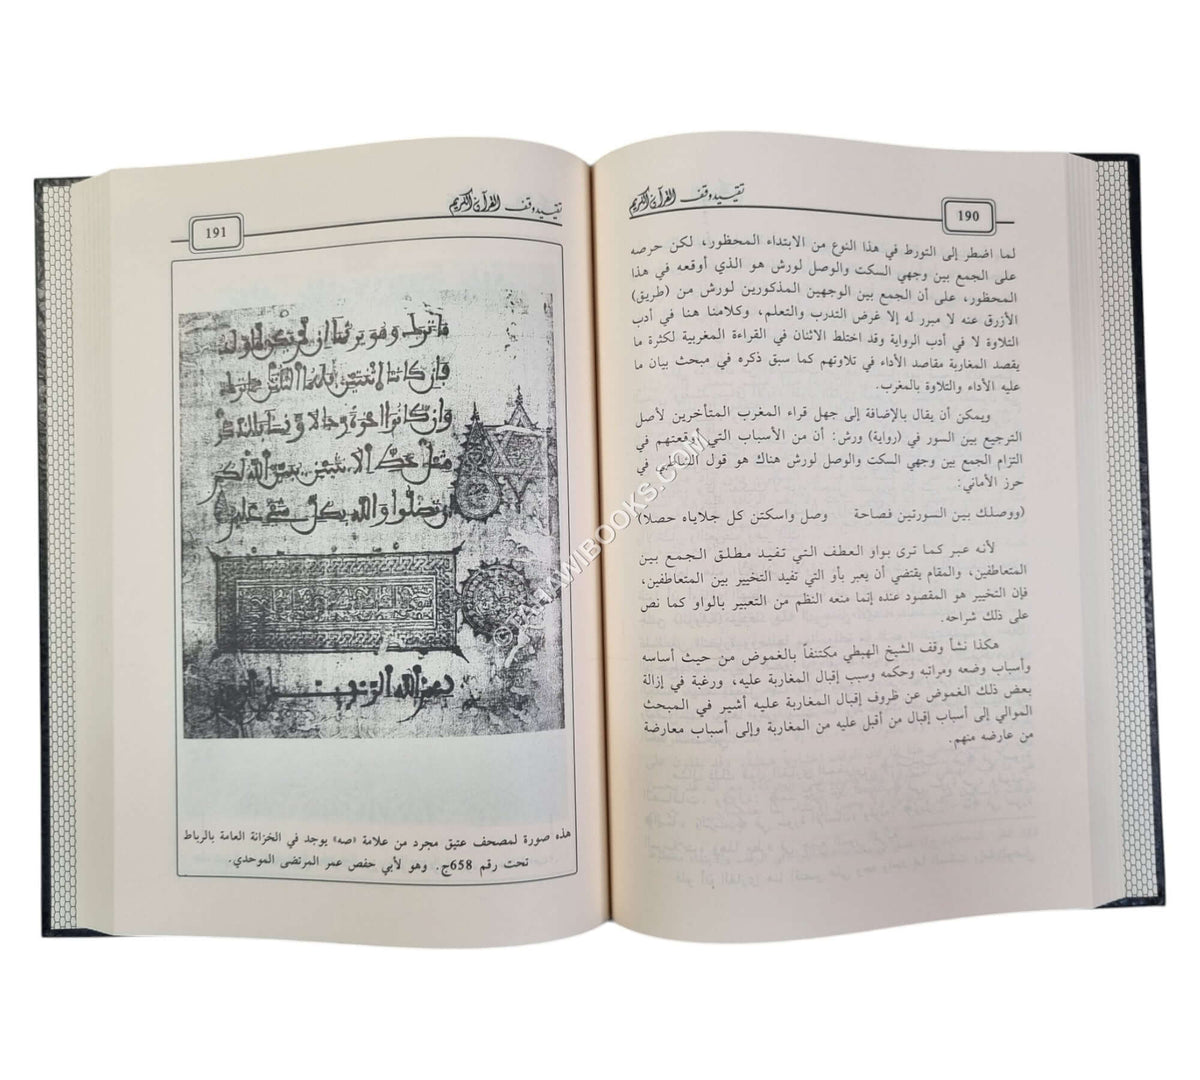 تقييد وقف القرآن الكريم
190
لما اضطر إلى التورط في هذا النوع من الابتداء المحظور، لكن حرصه
على الجمع بين وجهي السكت والوصل لورش هو الذي أوقعه في هذا
المحظور، على أن الجمع بين الوجهين المذكورين لورش من (طريق)
الأزرق عنه لا مبرر له إلا غرض التدرب والتعلم، وكلامنا هنا في أدب
التلاوة لا في أدب الرواية وقد اختلط الاثنان في القراءة المغربية لكثرة ما
يقصد المغاربة مقاصد الأداء في تلاوتهم كما سبق ذكره في مبحث بيان ما
عليه الأداء والتلاوة بالمغرب.
ويمكن أن يقال بالإضافة إلى جهل قراء المغرب المتأخرين لأصل
الترجيع بين السور في (رواية) ورش: أن من الأسباب التي أوقعتهم في
التزام الجمع بين وجهي السكت والوصل لورش هناك هو قول الشاطبي في
حرز الأماني:
(ووصلك بين السورتين فصاحة وصل واسكتن كل جلاياه حصلا)
لأنه عبر كما ترى بواو العطف التي تفيد مطلق الجمع بين
المتعاطفين، والمقام يقتضي أن يعبر بأو التي تفيد التخيير بين المتعاطفين،
فإن التخيير هو المقصود عنده إنما منعه النظم من التعبير بالواو كما نص
على ذلك شراحه.
هكذا نشأ وقف الشيخ الهبطي مكتنفاً بالغموض من حيث أساسه
وأسباب وضعه ومراتبه وحكمه وسبب إقبال المغاربة عليه، ورغبة في إزالة
بعض ذلك الغموض عن ظروف إقبال المغاربة عليه أشير في المبحث
الموالي إلى أسباب إقبال من أقبل عليه من المغاربة وإلى أسباب معارضة
من عارضه منهم.
تقييد وقف القرآن الكريم
191
ما ترك وهو يرثها إن لم يكن لها ولد
فإن كانتا اثنتين فلهما الثلثن مما ترك
وإن كانوا إخوة رجالا ونساء فللذكر
مثل حظ الانثيين يبين الله لكم
أن تضلوا والله بكل شيء عليم
بسم الله الرحمن الرحيم
هذه صورة لمصحف عتيق مجرد من علامة «صه» يوجد في الخزانة العامة بالرباط
تحت رقم 658ج. وهو لأبي حفص عمر المرتضى الموحدي.